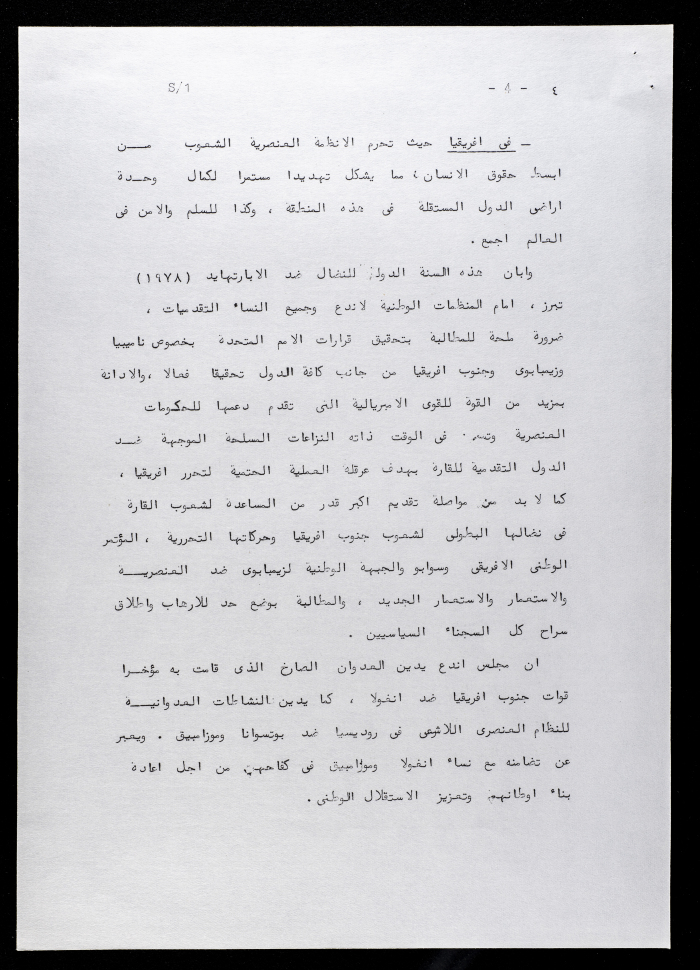 S/1 - ٤ - ٤
— فى افريقيا حيث تحرم الانظمة العنصرية الشعوب مـــن
ابسط حقوق الانسان، مما يشكل تهديدا مستمرا لكمال وحـدة
اراضى الدول المستقلة فى هذه المنطقة ، وكذا للسلم والامن فى
العالم اجمع .
وابان هذه السنة الدولية للنضال ضد الابارتهايد (١٩٧٨)
تبرز ، امام المنظمات الوطنية لاندع وجميع النساء التقدميات ،
ضرورة ملحة للمطالبة بتحقيق قرارات الامم المتحدة بخصوص ناميبيا
وزيمبابوى وجنوب افريقيا من جانب كافة الدول تحقيقا فعالا ،والادانة
بمزيد من القوة للقوى الامبريالية التى تقدم دعمها للحكومات
العنصرية فى الوقت ذاته النزاعات المسلحة الموجهة ضـد
الدول التقدمية للقارة بهدف عرقلة العملية الحتمية لتحرر افريقيا ،
كما لا بد من مواصلة تقديم اكبر قدر من المساعدة لشعوب القارة
فى نضالها البطولى لشعوب جنوب افريقيا وحركاتها التحررية ، المؤتمر
الوطنى الافريقى وسوابو والجبهة الوطنية لزيمبابوى ضد العنصريـــة
والاستعمار والاستعمار الجديد ، والمطالبة بوضع حد للارهاب واطلاق
سراح كل السجناء السياسيين .
ان مجلس اندع يدين العدوان الصارخ الذى قامت به مؤخـرا
قوات جنوب افريقيا ضد انغولا ، كما يدين النشاطات العدوانيـــة
للنظام العنصرى اللاشرعى فى روديسيا ضد بوتسوانا وموزامبيق . ويعبر
عن تضامنه مع نساء انغولا وموزامبيق فى كفاحهن من اجل اعادة
بناء اوطانهم وتعزيز الاستقلال الوطنى .